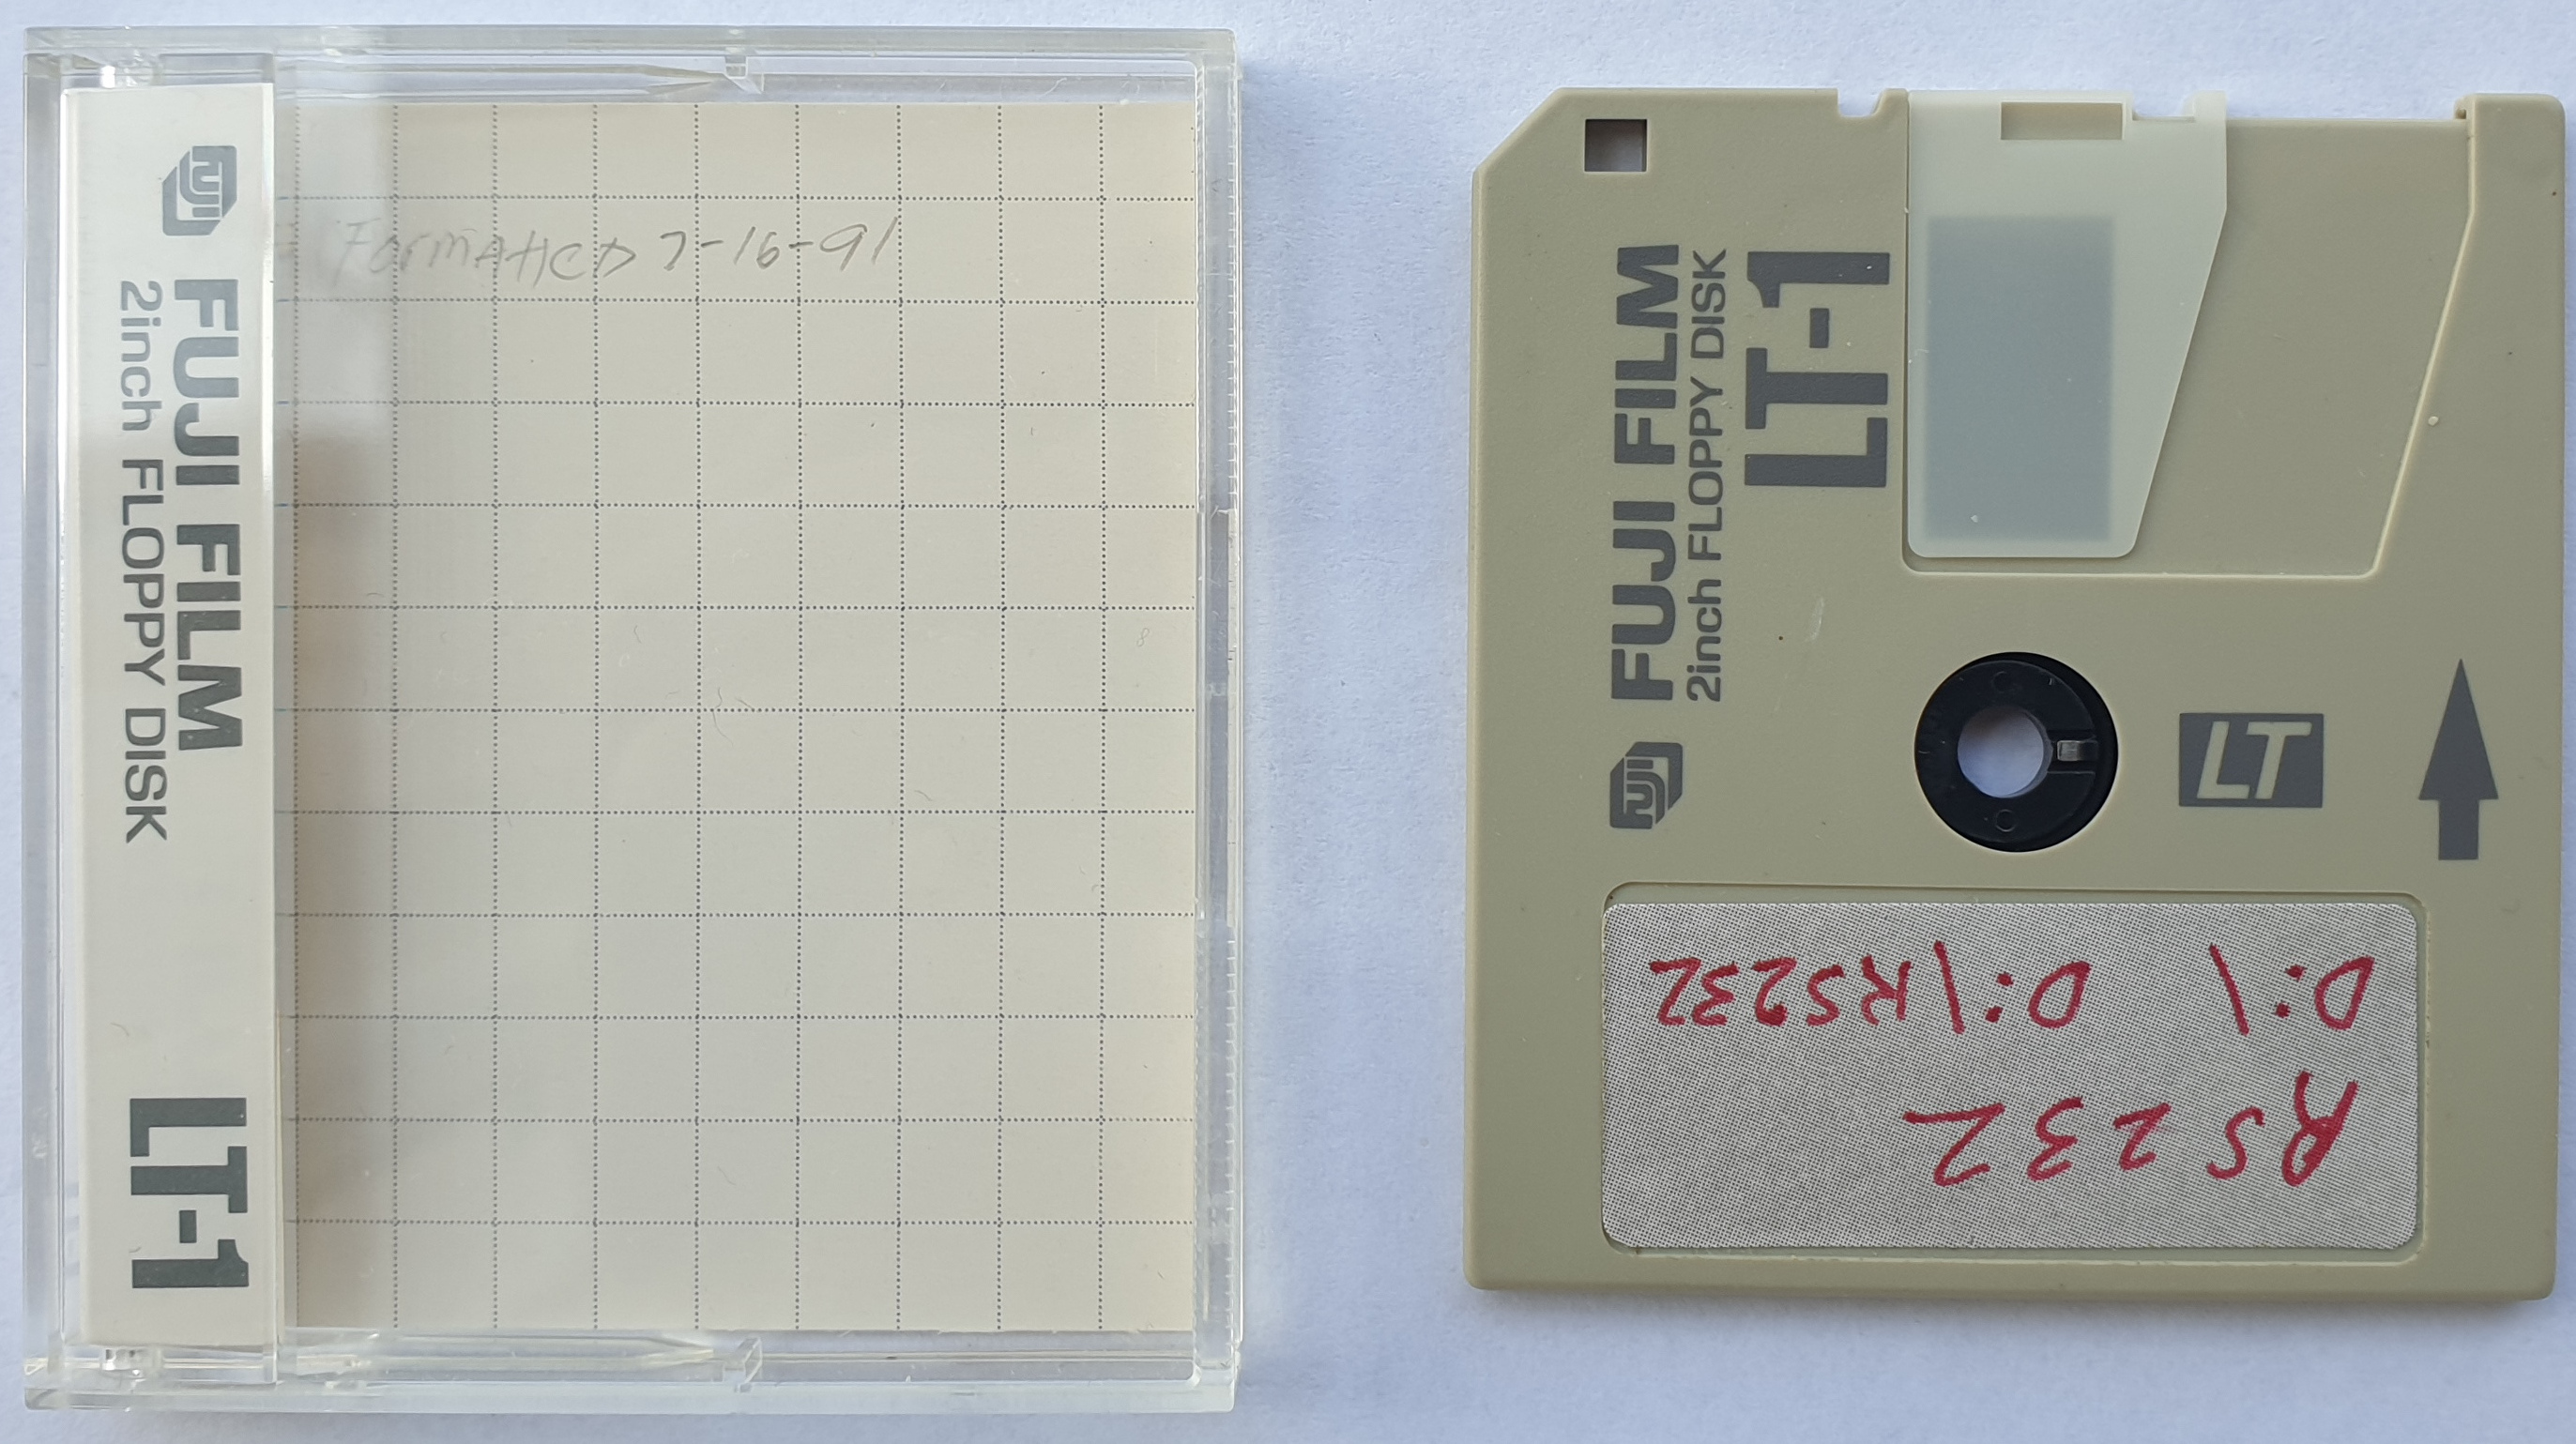 FUJI
FUJI FILM
2inch FLOPPY DISK
LT-1
FormAttED 7-16-91
FUJI
FUJI FILM
2inch FLOPPY DISK
LT-1
LT
RS232
D:\ D:\RS232